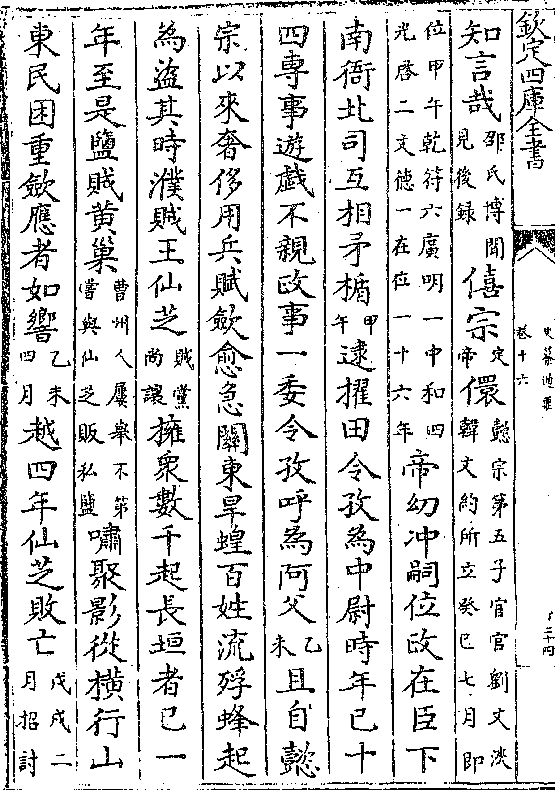 欽定四庫全書
史纂通要
卷十六
知言哉邵氏博聞見後錄僖宗定帝儇懿宗第五子宦官劉文決韓文約所立癸巳七月即
位甲午乾符六廣明一中和四光啓二文德一在位一十六年帝幼冲嗣位政在臣下
南衙北司互相矛楯甲午逮擢田令孜為中尉時年已十
四專事遊戱不親政事一委令孜呼為阿父乙未且自懿
宗以來奢侈用兵賦斂愈急關東旱蝗百姓流殍蜂起
為盜其時濮賊王仙芝賊黨尚讓擁衆數千起長垣者已一
年至是鹽賊黄巢曹州人屢舉不第嘗與仙芝販私鹽嘯聚影從横行山
東民困重斂應者如響乙未四月越四年仙芝敗亡戊戌二月招討